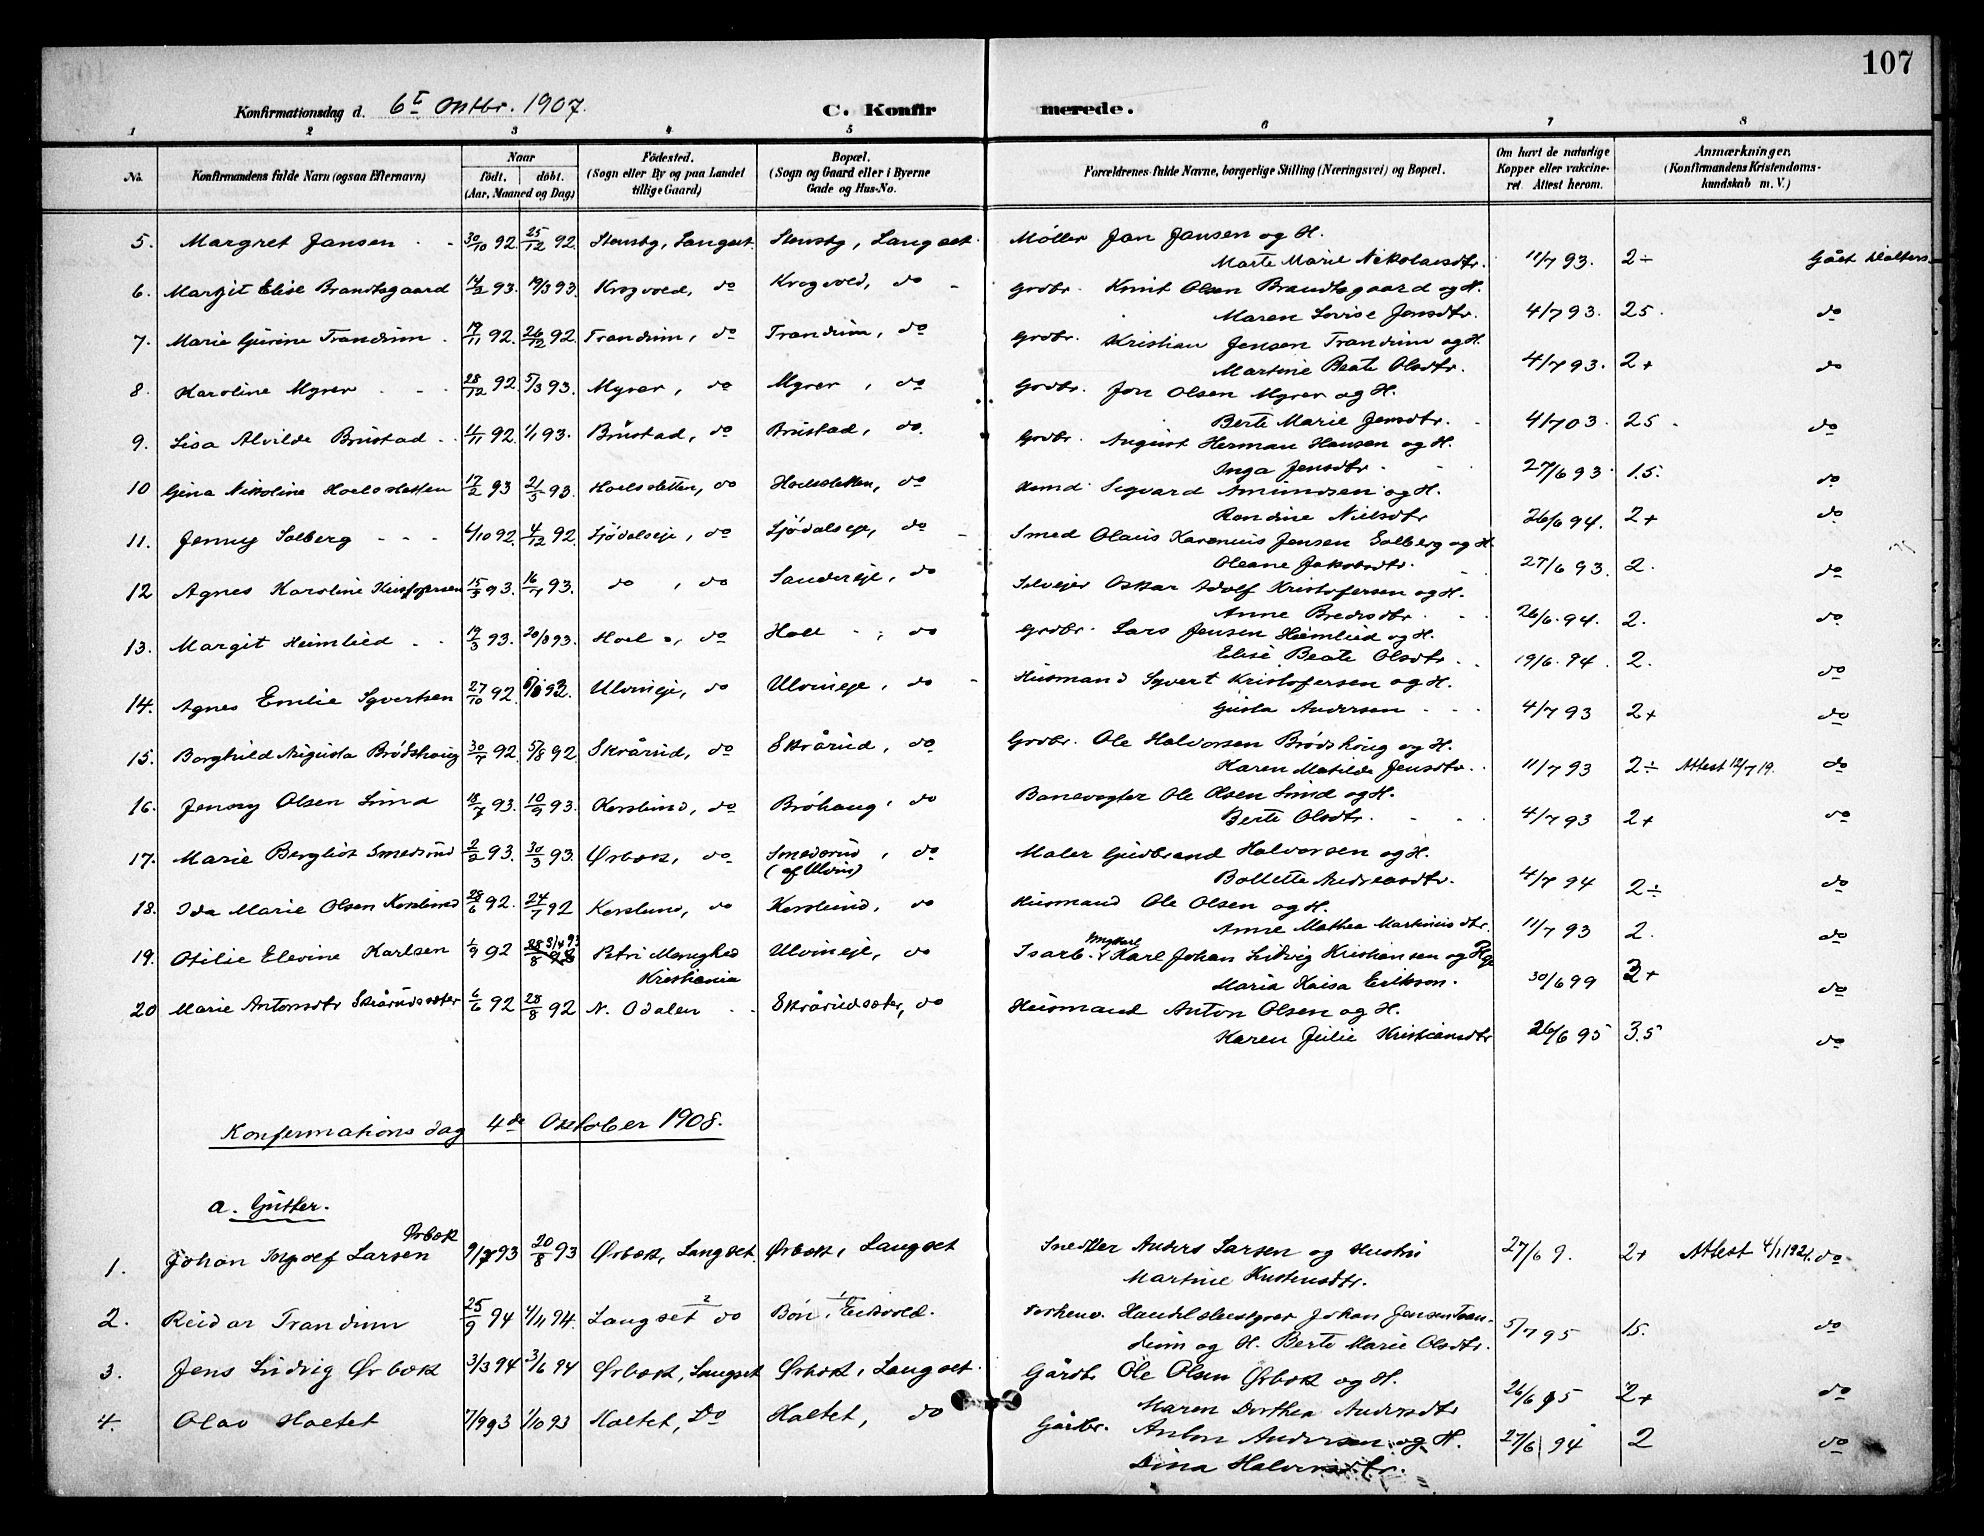 107
Konfirmationsdag d. 6t Oktbr. 1907.
C. Konfirmerede.
1 2 3 4 5 6 7 8
No.
Konfirmandens fulde Navn (ogsaa Efternavn)
Naar
født. døbt.
(Aar, Maaned og Dag)
Fødested.
(Sogn eller By og paa Landet
tillige Gaard)
Bopæl.
(Sogn og Gaard eller i Byerne
Gade og Hus-No.
Forældrenes fulde Navne, borgerlige Stilling (Næringsvei) og Bopæl.
Om havt de naturlige
Kopper eller vakcine-
ret. Attest herom.
Anmærkninger.
(Konfirmandens Kristendoms-
kundskab m. V.)
5. Margret Jansen 30/10 92 25/12 92 Stensby, Langset. Stensby, Langset. Møller Jan Jansen og H.
Marte Marie Nikolaisdtr. 11/7 93. 2÷ Gået tilalters
6. Margit Elise Brandtsgaard 14/2 93. 19/3 93. Krogvold, do Krogvold, do Grdbr. Knut Olsen Brandtsgaard og H.
Maren Lovise Jensdtr. 4/7 93. 25. do
7. Marie Gurine Trandum 19/11 92. 26/12 92. Trandum, do Trandum, do Grdbr. Kristian Jensen Trandum og H.
Martine Beate Olsdtr. 4/7 93. 2+ do
8. Karoline Myrer 28/12 92 5/3 93. Myrer, do Myrer, do Grdbr. Jon Olsen Myrer og H.
Berte Marie Jensdtr. 4/7 03. 25 do
9. Lisa Alvilde Brustad 4/11 92. 1/1 93. Brustad, do Brustad, do. Grdbr. August Herman Hansen og H.
Inga Jensdtr. 27/6 93 1.5. do
10 Gina Nikoline Hoelsletten 17/2 93 21/5 93. Hoelsletten, do Hoelsletten, do Husmd. Sigvard Amundsen og H.
Randine Nielsdtr 26/6 94. 2+ do
11. Jenny Solberg 4/10 92. 4/12 92 Sjödalseje, do Sjödalseje, do Smed Olaus Karenius Jensen Solberg og H.
Oleane Jakobsdtr. 27/6 93. 2. do
12 Agnes Karoline Kristofersen 15/3 93. 16/4 93. do, do Sandereje, do Selvejer Oskar Adolf Kristofersen og H.
Anne Bredesdtr. 26/6. 94. 2. do
13. Margit Heimlied 19/3 93. 20/8 93. Hoel, do Hoel, do Grdbr. Lars Jensen Heimlied og H.
Elise Beate Olsdtr. 19/6. 94. 2. do
14. Agnes Emilie Syvertsen 27/10 92 92. Ulvineje, do Ulvineje, do Husmand Syvert Kristofersen og H.
Gusta Andersen 4/7 93 2+ do
15. Borghild Augusta Brødshoug 30/7 92 5/8 92 Skrårud, do Skrårud, do Grdbr. Ole Halvorsen Brødshoug og H.
Karen Matilde Jensdtr. 11/7 93 2÷ Attest 12/7 19. do
16. Jenny Olsen Lund 18/7 93. 10/9 93. Korslund, do Bröhaug, do Banevogter Ole Olsen Lund og H.
Berte Olsdtr. 4/7 93 2+ do
17. Marie Bergliot Smedsrud 2/2 93. 30/3 93. Ørbæk, do Smedsrud, do
(af Ulvin)
Maler Gudbrand Halvorsen og H.
Bollette Andreasdtr. 4/7 94 2÷ do
18. Ida Marie Olsen Korslund 28/6 92. 24/7 92 Korslund, do Korslund, do Husmand Ole Olsen og H.
Anne Mathea Martinusdtr. 11/7 93 2. do
19. Otilie Elevine Karlsen 1/9 92 28/8 93 Petri Menighed
Kristiania
Ulvineje, do Isarb. Karl Johan Ludvig Kristiansen og
Maria Kaisa Erikson. 30/6 99 3+ do
20 Marie Antonsdtr Skårudsæter 6/6 92 28/8 92 N. Odalen Skårudsæter, do Husmand Anton Olsen og H.
Karen Julie Kristiansdtr 26/6 95 3.5 do
Konfirmationsdag 4de Oktober 1908.
a. Gutter.
Ørbæk
1. Johan Ingolf Larsen 9/7 93 20/8 93 Ørbæk, Langset. Ørbæk, Langset Snedker Anders Larsen og Hustru
Martine Kristensdtr. 27/6 9. 2+ Attest 4/1 1921. do
2. Reidar Trandum 25/9 94 4/11 94. Langset do Bøn, Eidsvold. Forhenv. Handelsbestyrer Johan Jensen Tran-
dum og H. Berte Marie Olsdtr. 5/7 95 15. do
3. Jens Ludvig Ørbæk 3/3 94 3/6 94 Ørbæk, Langset Ørbæk, Langset. Gårdbr Ole Olsen Ørbæk og H.
Maren Dorthea Andersdtr 26/6 95 2+ do
4. Olav Holtet 7/9 93 1/10 93 Holtet, Do Holtet, do Gårbr. Anton Andersen og H.
Dina Halvorsdtr. 27/6 94 2 do